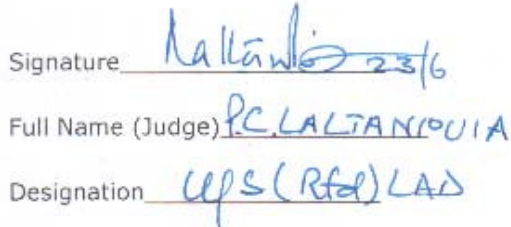 Signature 23/6
Full Name (Judge) P.C. LALTANPUIA
Designation (Rtd) LAD